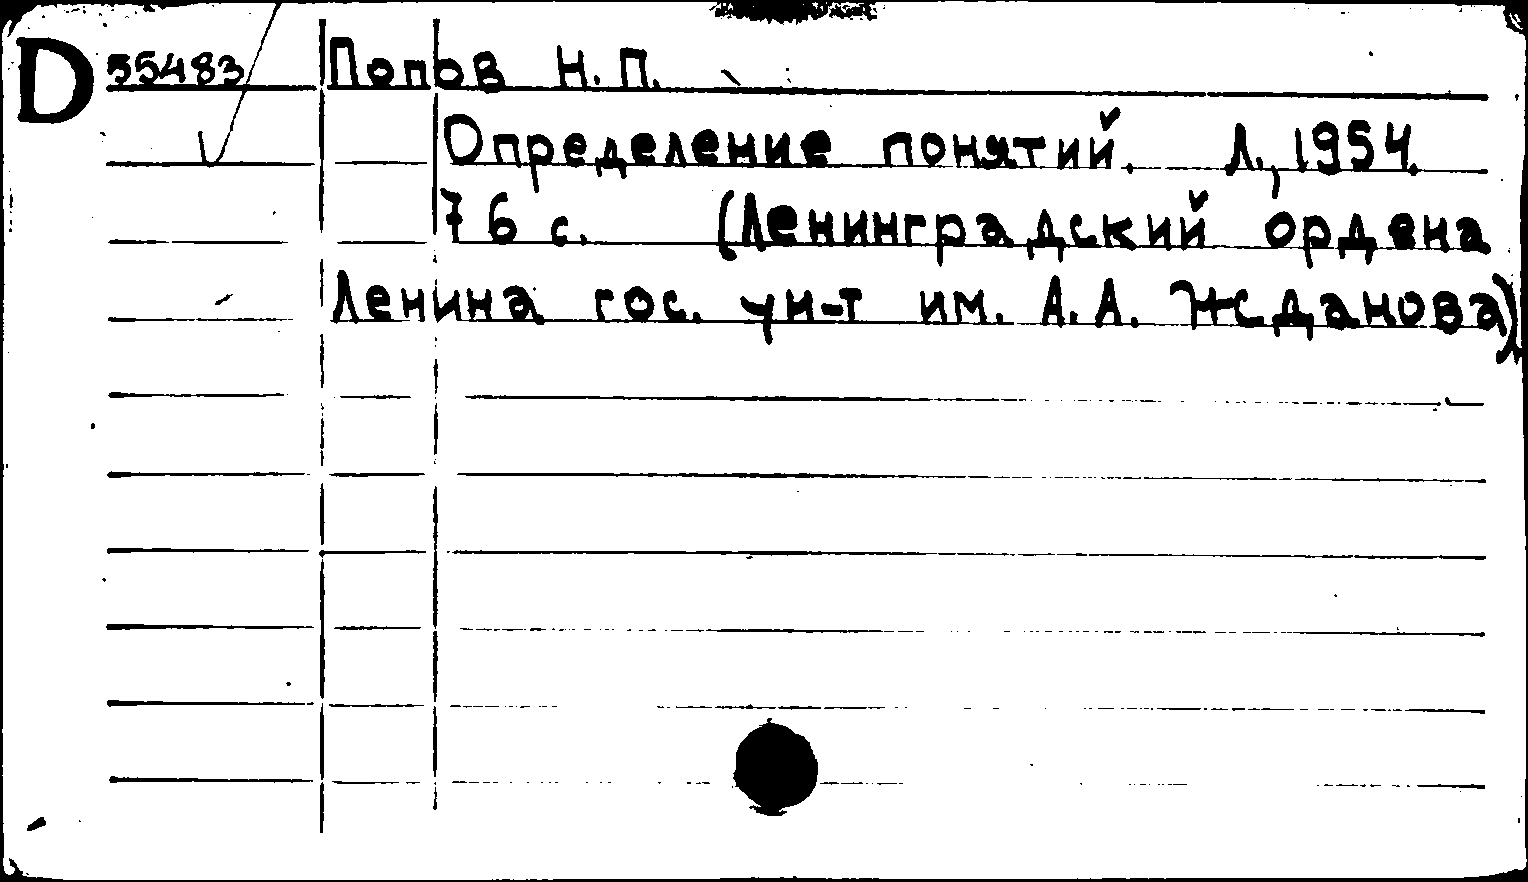 D 55483 Попов Н. П.
Определение понятий. Л., 1954.
76 с. (Ленинградский ордена
Ленина гос. ун-т им. А. А. Жданова)